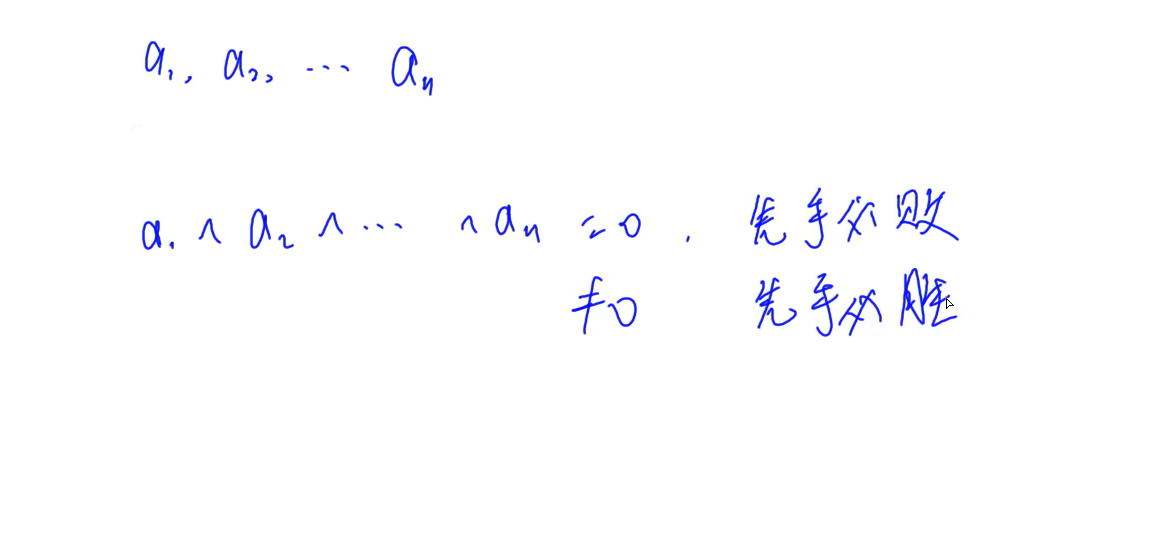 a₁, a₂, ... aₙ
a₁ ^ a₂ ^ ... ^ aₙ = 0 . 先手必败
≠0 先手必胜